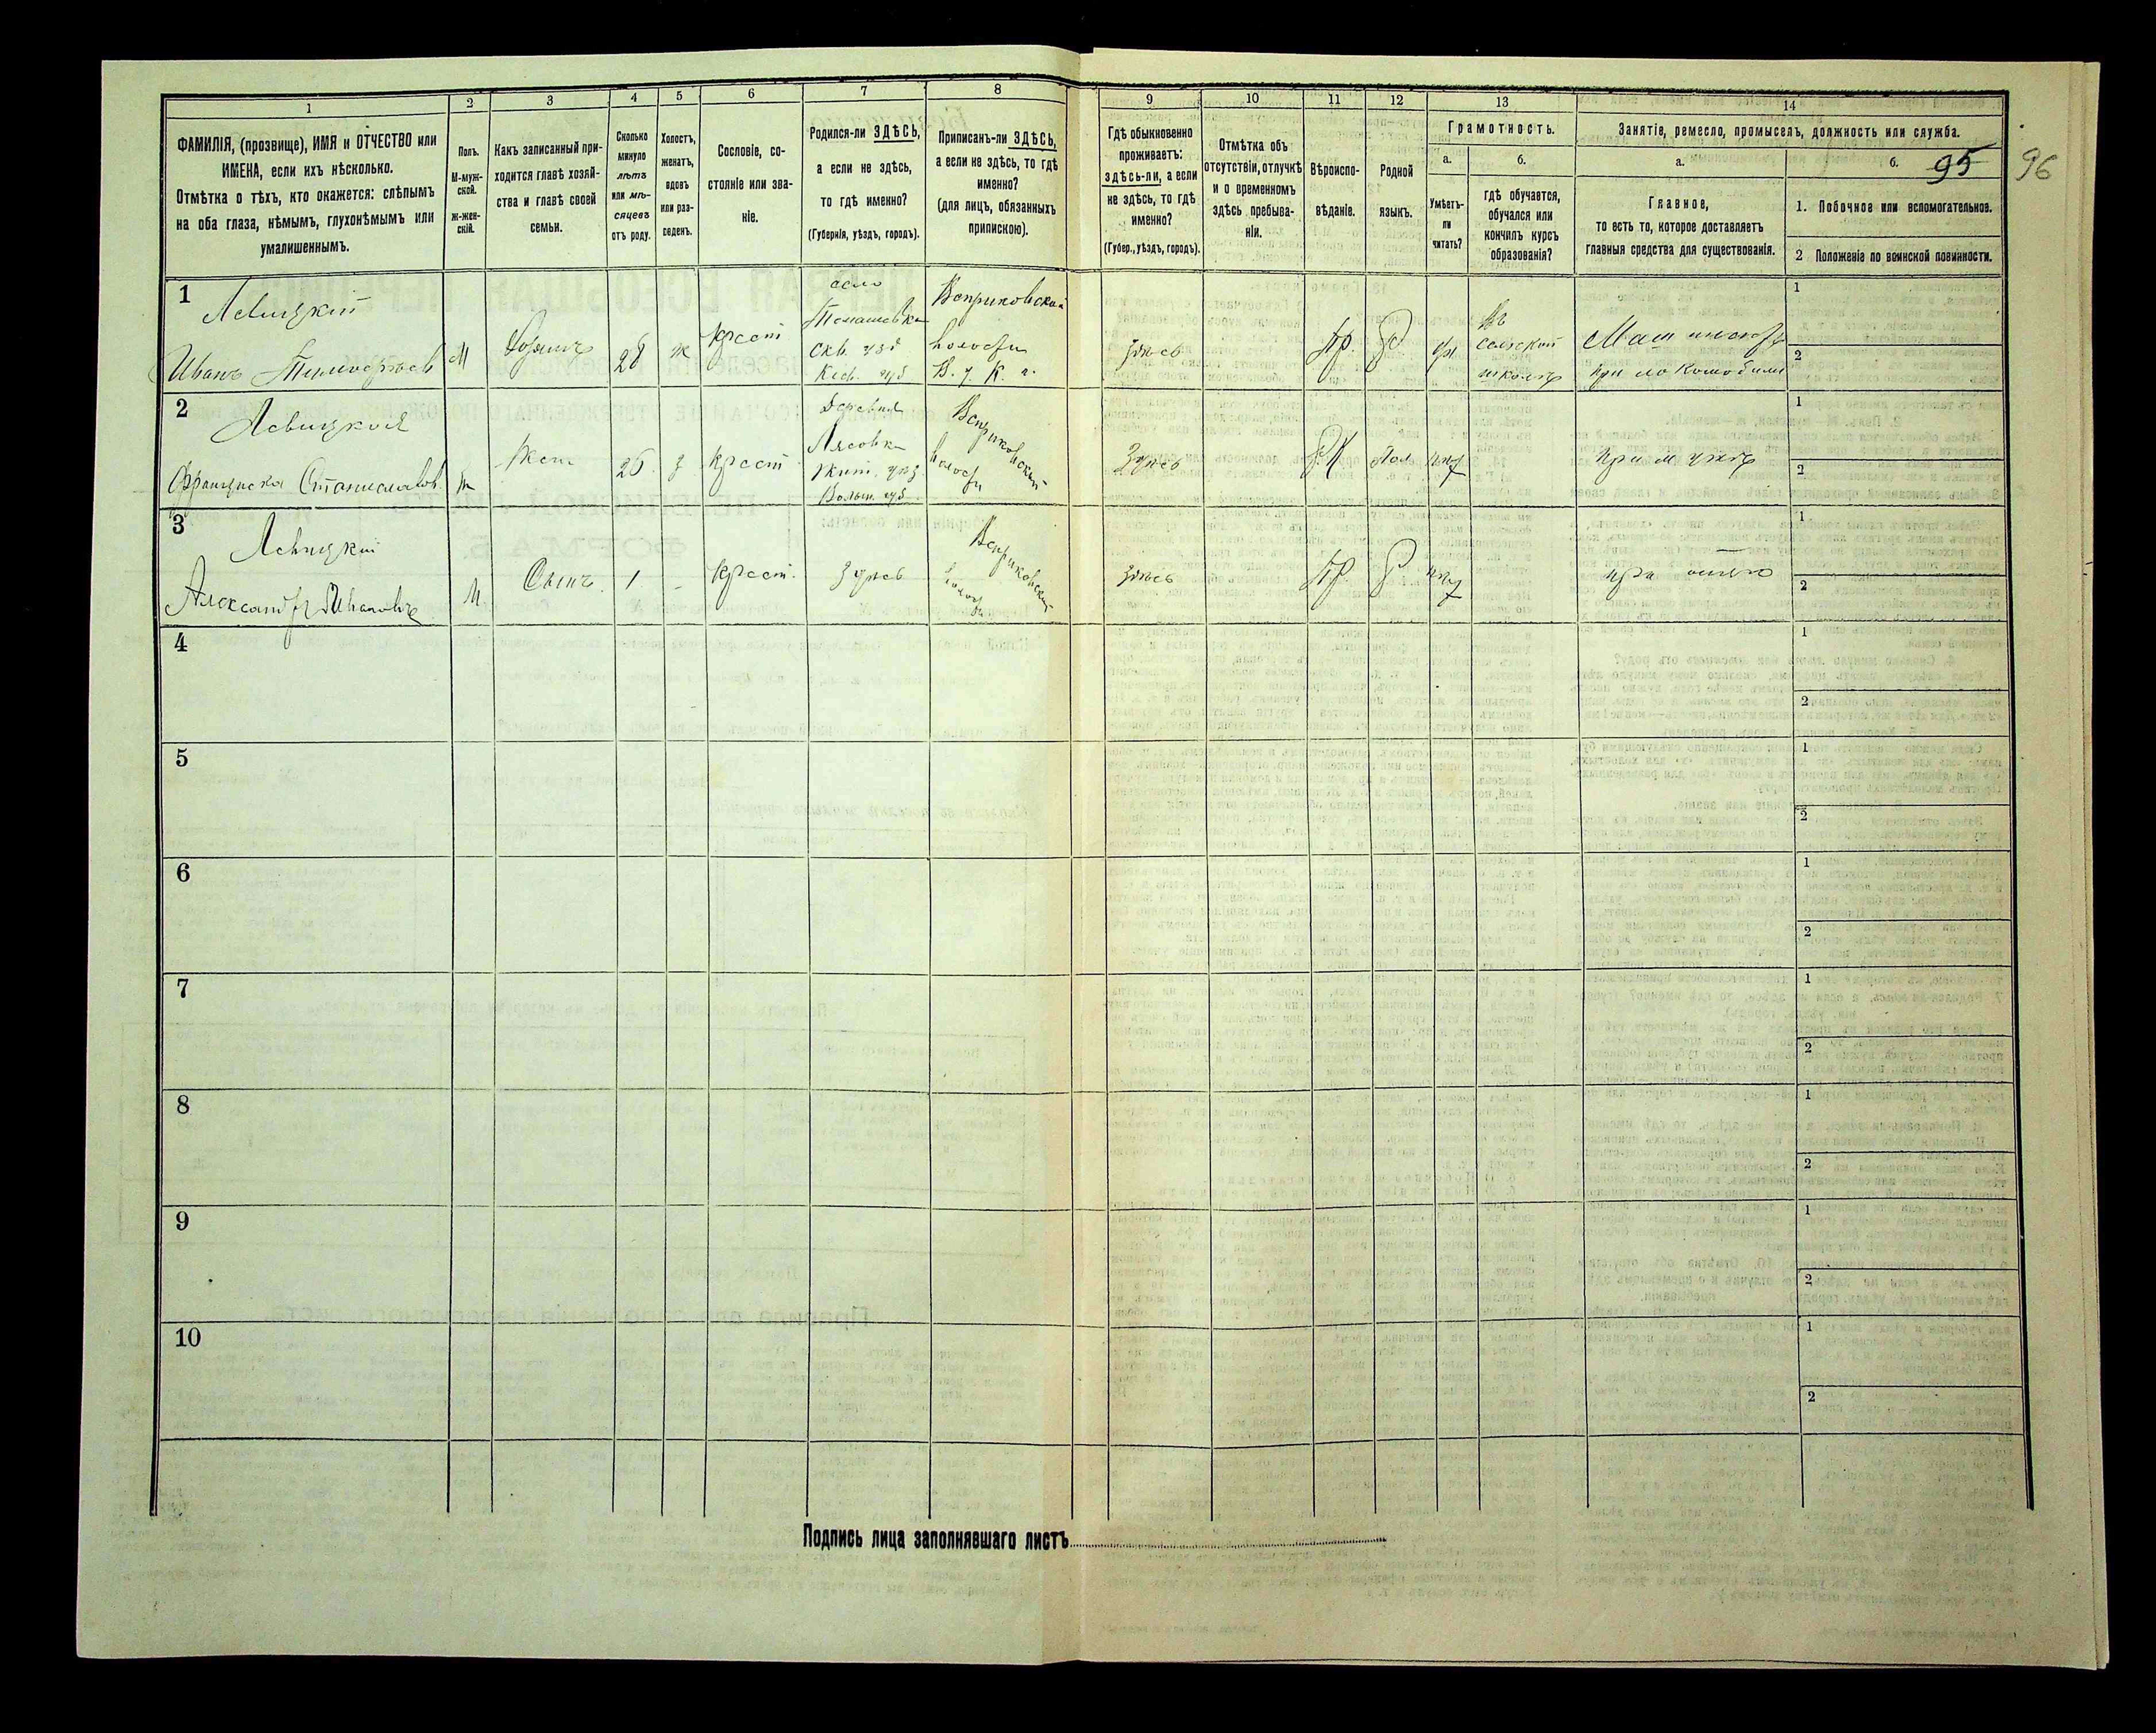 1
2
3
4
5
6
7
8
ФАМИЛІЯ, (прозвище), ИМЯ и ОТЧЕСТВО или
ИМЕНА, если ихъ нѣсколько.
Отмѣтка о тѣхъ, кто окажется: слѣпымъ
на оба глаза, нѣмымъ, глухонѣмымъ или
умалишеннымъ.
Полъ.
М-муж-
ской.
ж-жен-
скій.
Какъ записанный при-
ходится главѣ хозяй-
ства и главѣ своей
семьи.
Сколько
минуло
лѣтъ
или мѣ-
сяцевъ
отъ роду.
Холостъ,
женатъ,
вдовъ
или раз-
веденъ.
Сословіе, со-
стояніе или зва-
ніе.
Родился-ли ЗДѢСЬ,
а если не здѣсь,
то гдѣ именно?
(Губернія, уѣздъ, городъ).
Приписанъ-ли ЗДѢСЬ,
а если не здѣсь, то гдѣ
именно?
(для лицъ, обязанныхъ
припискою).
9
10
11
12
13
14
Гдѣ обыкновенно
проживаетъ:
здѣсь-ли, а если
не здѣсь, то гдѣ
именно?
(Губер., уѣздъ, городъ).
Отмѣтка объ
отсутствіи, отлучкѣ
и о временномъ
здѣсь пребыва-
ніи.
Вѣроиспо-
вѣданіе.
Родной
языкъ.
Грамотность.
а.
б.
Умѣетъ-
ли
читать?
гдѣ обучается,
обучался или
кончилъ курсъ
образованія?
Занятіе, ремесло, промыселъ, должность или служба.
а.
б.
95
96
Главное,
то есть то, которое доставляетъ
главныя средства для существованія.
1. Побочное или вспомогательное.
2 Положеніе по воинской повинности.
1
Левицкій
Иванъ Тимофѣевъ
М
28
ж
Крест
село
Томашевка
Скв. узд
Кіев. губ
Веприковской
волости
В. у К. г.
здѣсь
Пр.
Р
въ
сельской
школѣ
при локомобили
1
2
2
Левицкая
Франциска Станиславов.
Жена
26
з
Крест
Деревня
Лясовка
Жит. уѣз
Волын. губ.
Веприковской
волости
Здѣсь
Р.К
Пол
нѣт
при мужѣ
1
2
3
Левицкій
Александръ Ивановъ
М
Сынъ
1
-
Крест.
Здѣсь
Веприковской
волости
здѣсь
Пр.
Р
нѣт
при отце
1
2
4
1
2
5
1
2
6
1
2
7
1
2
8
1
2
9
1
2
10
1
2
Подпись лица заполнявшаго листъ